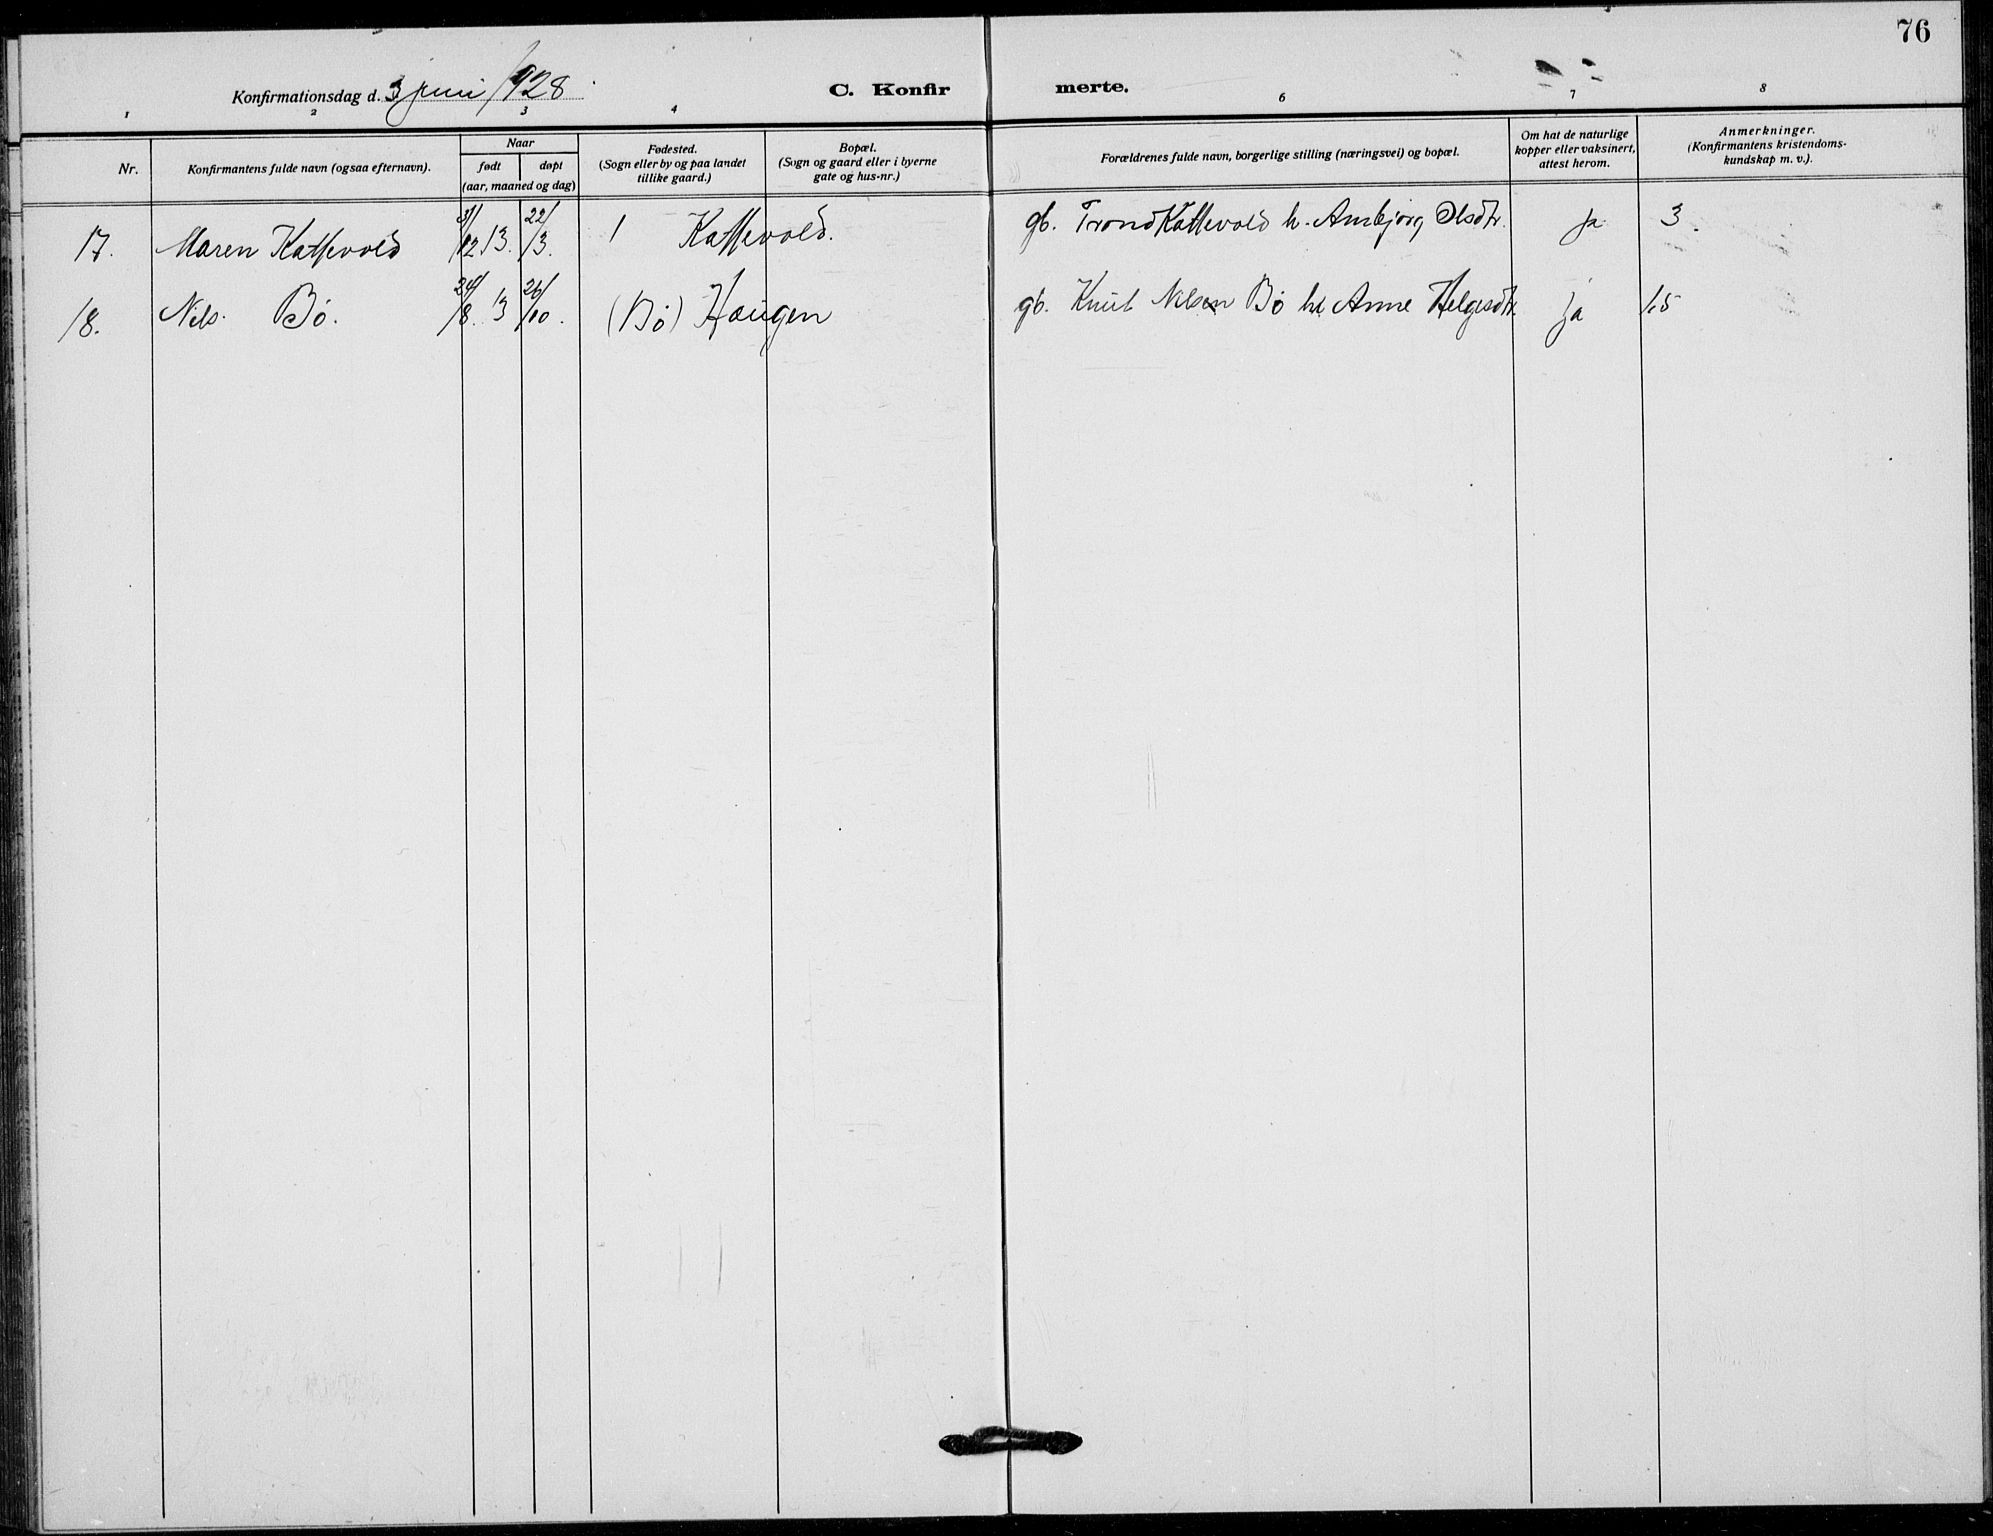 76
Konfirmationsdag d. 3 juni 1928.
C. Konfir merte.
1 2 3 4 6 7 8
Nr.
Konfirmantens fulde navn (ogsaa efternavn).
Naar
født døpt
(aar, maaned og dag)
Fødested.
(Sogn eller by og paa landet
tillike gaard.)
Bopæl.
(Sogn og gaard eller i byerne
gate og hus-nr.)
Forældrenes fulde navn, borgerlige stilling (næringsvei) og bopæl.
Om hat de naturlige
kopper eller vaksinert,
attest herom.
Anmerkninger.
(Konfirmantens kristendoms-
kundskap m. v.).
17. Maren Kattevold /12 13. 22/ /3. Kattevold. gb. Trond Kattevold h. Ambjørg Olsdtr. ja 3
18. Nils Bø. 24/8 13 26/10. (Bø) Haugen gb. Knut Nilsen Bø h. Anne Helgesdtr. ja 1.5